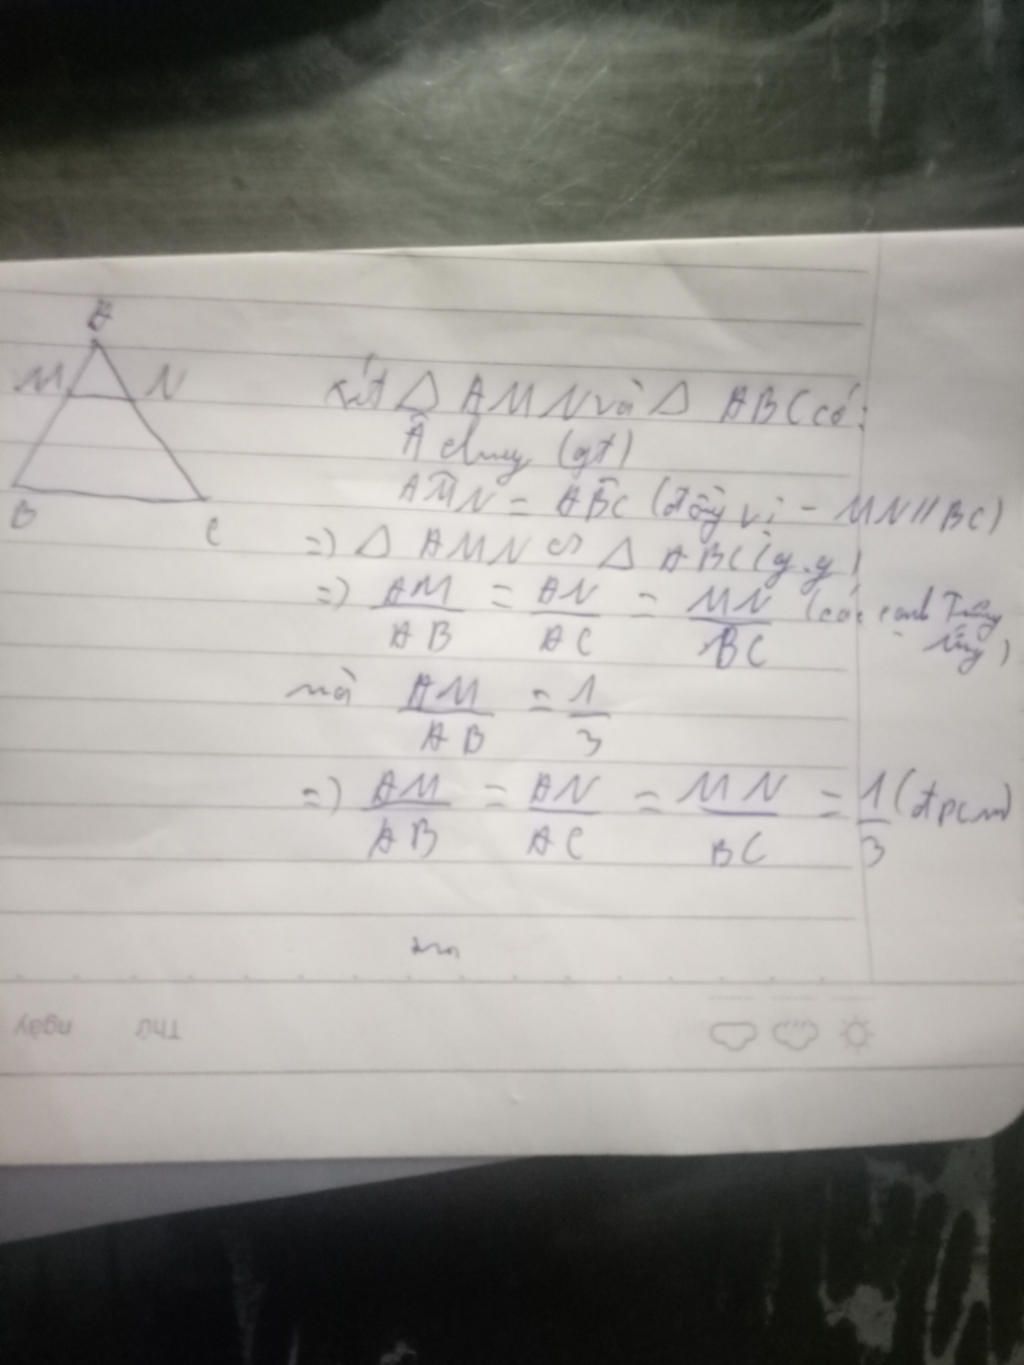 A
M N
B C
Xét △ AMN và △ ABC có:
Â chung (gt)
AM̂N = AB̂C (đồng vị - MN // BC)
=) △ AMN ∽ △ ABC (g.g)
=) AM/AB = AN/AC = MN/BC (các cạnh Tương ứng)
mà AM/AB = 1/3
=) AM/AB = AN/AC = MN/BC = 1/3 (đpcm)
Thứ ngày